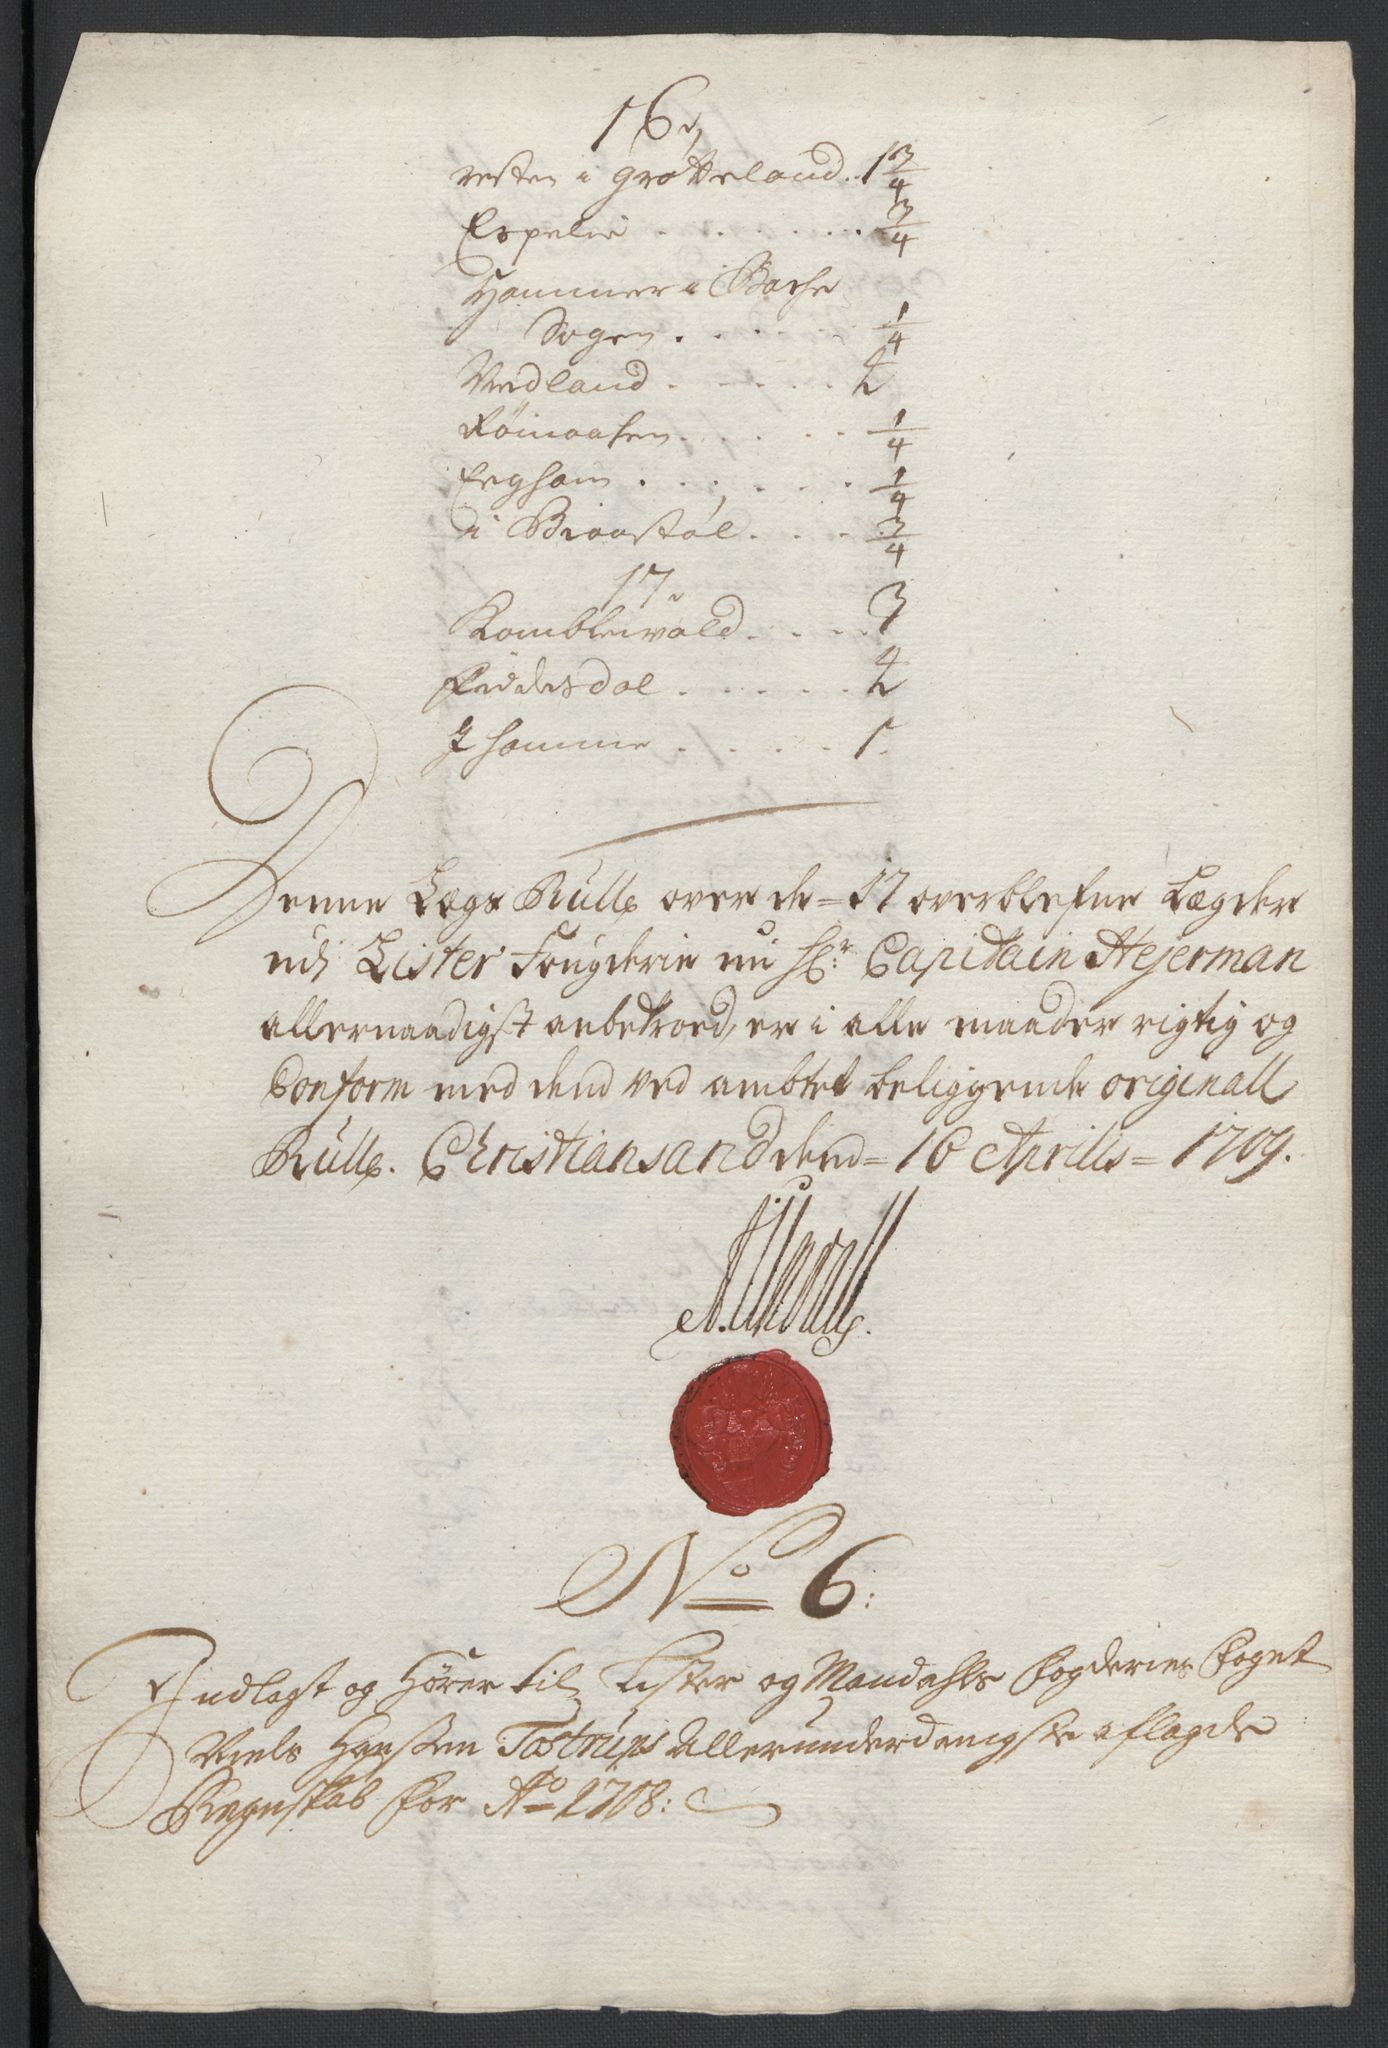 16
resten i Grotteland . . 1 3/4
Espelie . . . . . . . 3/4
Hammer i Bache
Sogen . . . . . 1/4
Vedland . . . . . 1/2
Röinaasen . . . . . 1/4
Ergham . . . . . . 1/4
i Biaastøl . . . . 3/4
17
. . . .
Fiddesdal . . . . . 1/2
I samme . . . . 1
Denne Legs Rulle over de = 17 overblefne Lægder
udj Lister Fougderie nu Hr: Capitain Hejerman
allernaadigst anbetroed, er i alle maader rigtig og
Conform med dend ved ambtet beliggende originall
Rulle. Christiansand dend = 16 Aprilis = 1709.
No 6:
Indlagt og Hörer til Lister og Mandahls fogderies foget
Niels Hansen Tostrups allerunderdanigste aflagde
Regnskab for Ao 1708: